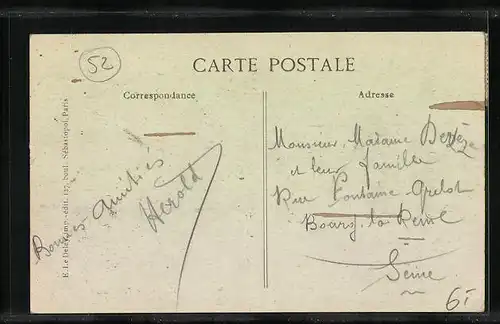 52
CARTE POSTALE
Correspondance
Adresse
Bonnes Amitiés
Hérold
Monsieur, Madame
et leur famille
Rue Fontaine-Grelot
Bourg-la-Reine
Seine
E. Le Deley, imp.-édit. 127, boul. Sébastopol, Paris